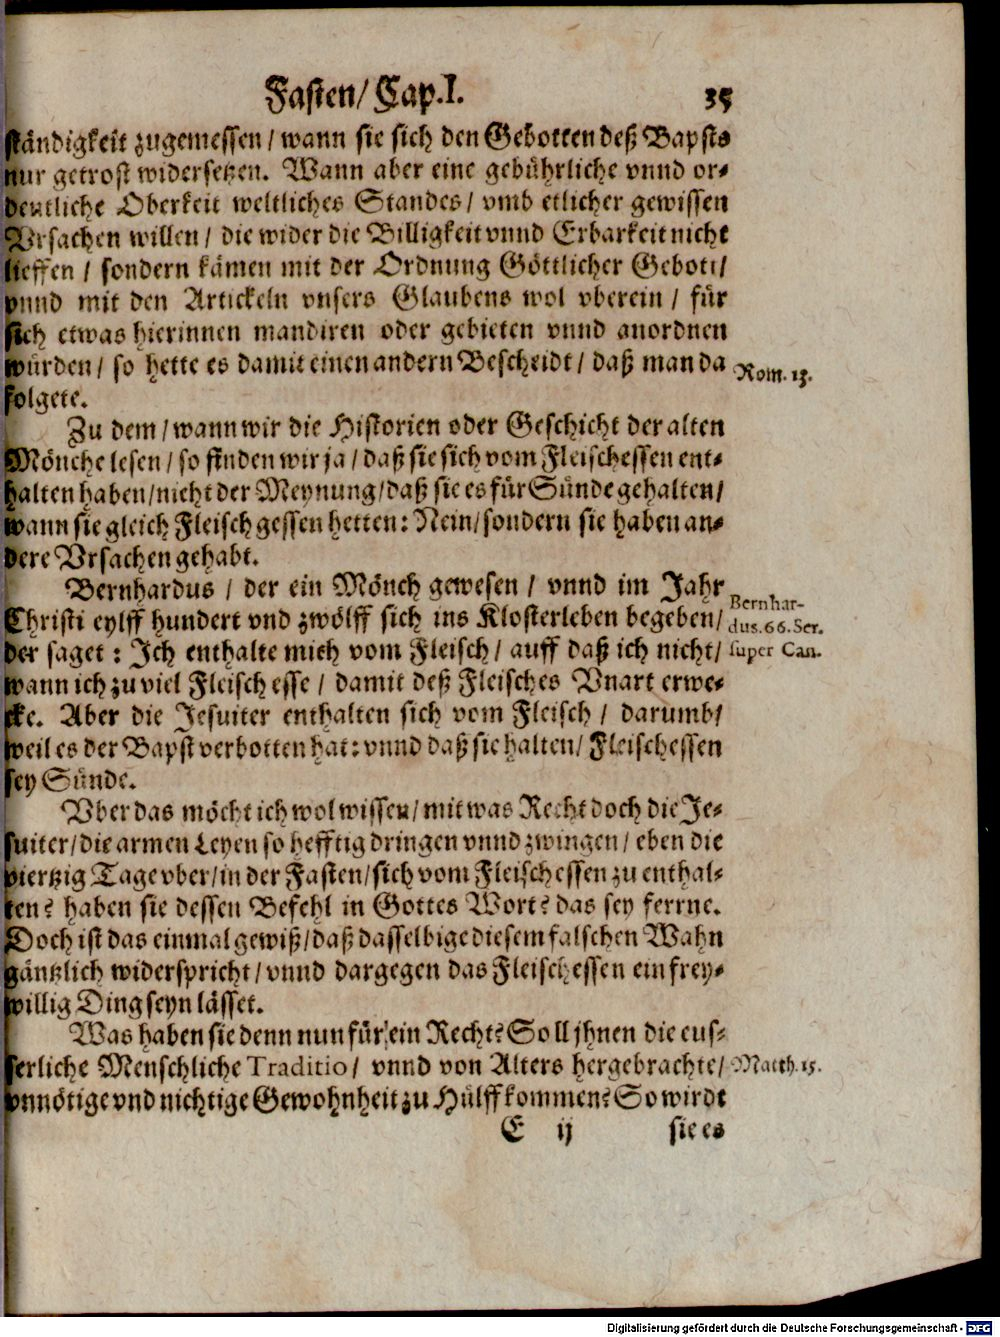 Fasten/ Cap.I. 35
ständigkeit zugemessen / wann sie sich den Gebotten deß Bapsts
nur getrost widersetzen. Wann aber eine gebührliche vnnd or-
dentliche Oberkeit weltliches Standes / vmb etlicher gewissen
Vrsachen willen / die wider die Billigkeit vnnd Erbarkeit nicht
lieffen / sondern kämen mit der Ordnung Göttlicher Gebott/
vnnd mit den Artickeln vnsers Glaubens wol vberein / für
sich etwas hierinnen mandiren oder gebieten vnnd anordnen
würden / so hette es damit einen andern Bescheidt / daß man da
Rom. 13.
folgete.
Zu dem / wann wir die Historien oder Geschicht der alten
Mönche lesen / so finden wir ja / daß sie sich vom Fleischessen ent-
halten haben/nicht der Meynung/daß sie es für Sünde gehalten/
wann sie gleich Fleisch gessen hetten: Nein/sondern sie haben an-
dere Vrsachen gehabt.
Bernhardus / der ein Mönch gewesen / vnnd im Jahr
Christi eylff hundert vnd zwölff sich ins Klosterleben begeben/
der saget : Ich enthalte mich vom Fleisch / auff daß ich nicht/
Bernhar-
dus. 66. Ser.
super Can.
wann ich zu viel Fleisch esse / damit deß Fleisches Vnart erwe-
cke. Aber die Jesuiter enthalten sich vom Fleisch / darumb/
weil es der Bapst verbotten hat: vnnd daß sie halten/ Fleischessen
sey Sünde.
Vber das möcht ich wol wissen/ mit was Recht doch die Je-
suiter/die armen Leyen so hefftig dringen vnnd zwingen / eben die
viertzig Tage vber/in der Fasten/sich vom Fleischessen zu enthal-
ten? haben sie dessen Befehl in Gottes Wort? das sey ferrne.
Doch ist das einmal gewiß/daß dasselbige diesem falschen Wahn
gäntzlich widerspricht/ vnnd dargegen das Fleischessen ein frey-
willig Ding seyn lässet.
Was haben sie denn nun für ein Recht? Soll jhnen die eus-
serliche Menschliche Traditio / vnnd von Alters hergebrachte/
Matth. 15.
vnnötige vnd nichtige Gewohnheit zu Hülff kommen? So wirdt
E ij sie es
Digitalisierung gefördert durch die Deutsche Forschungsgemeinschaft - DFG